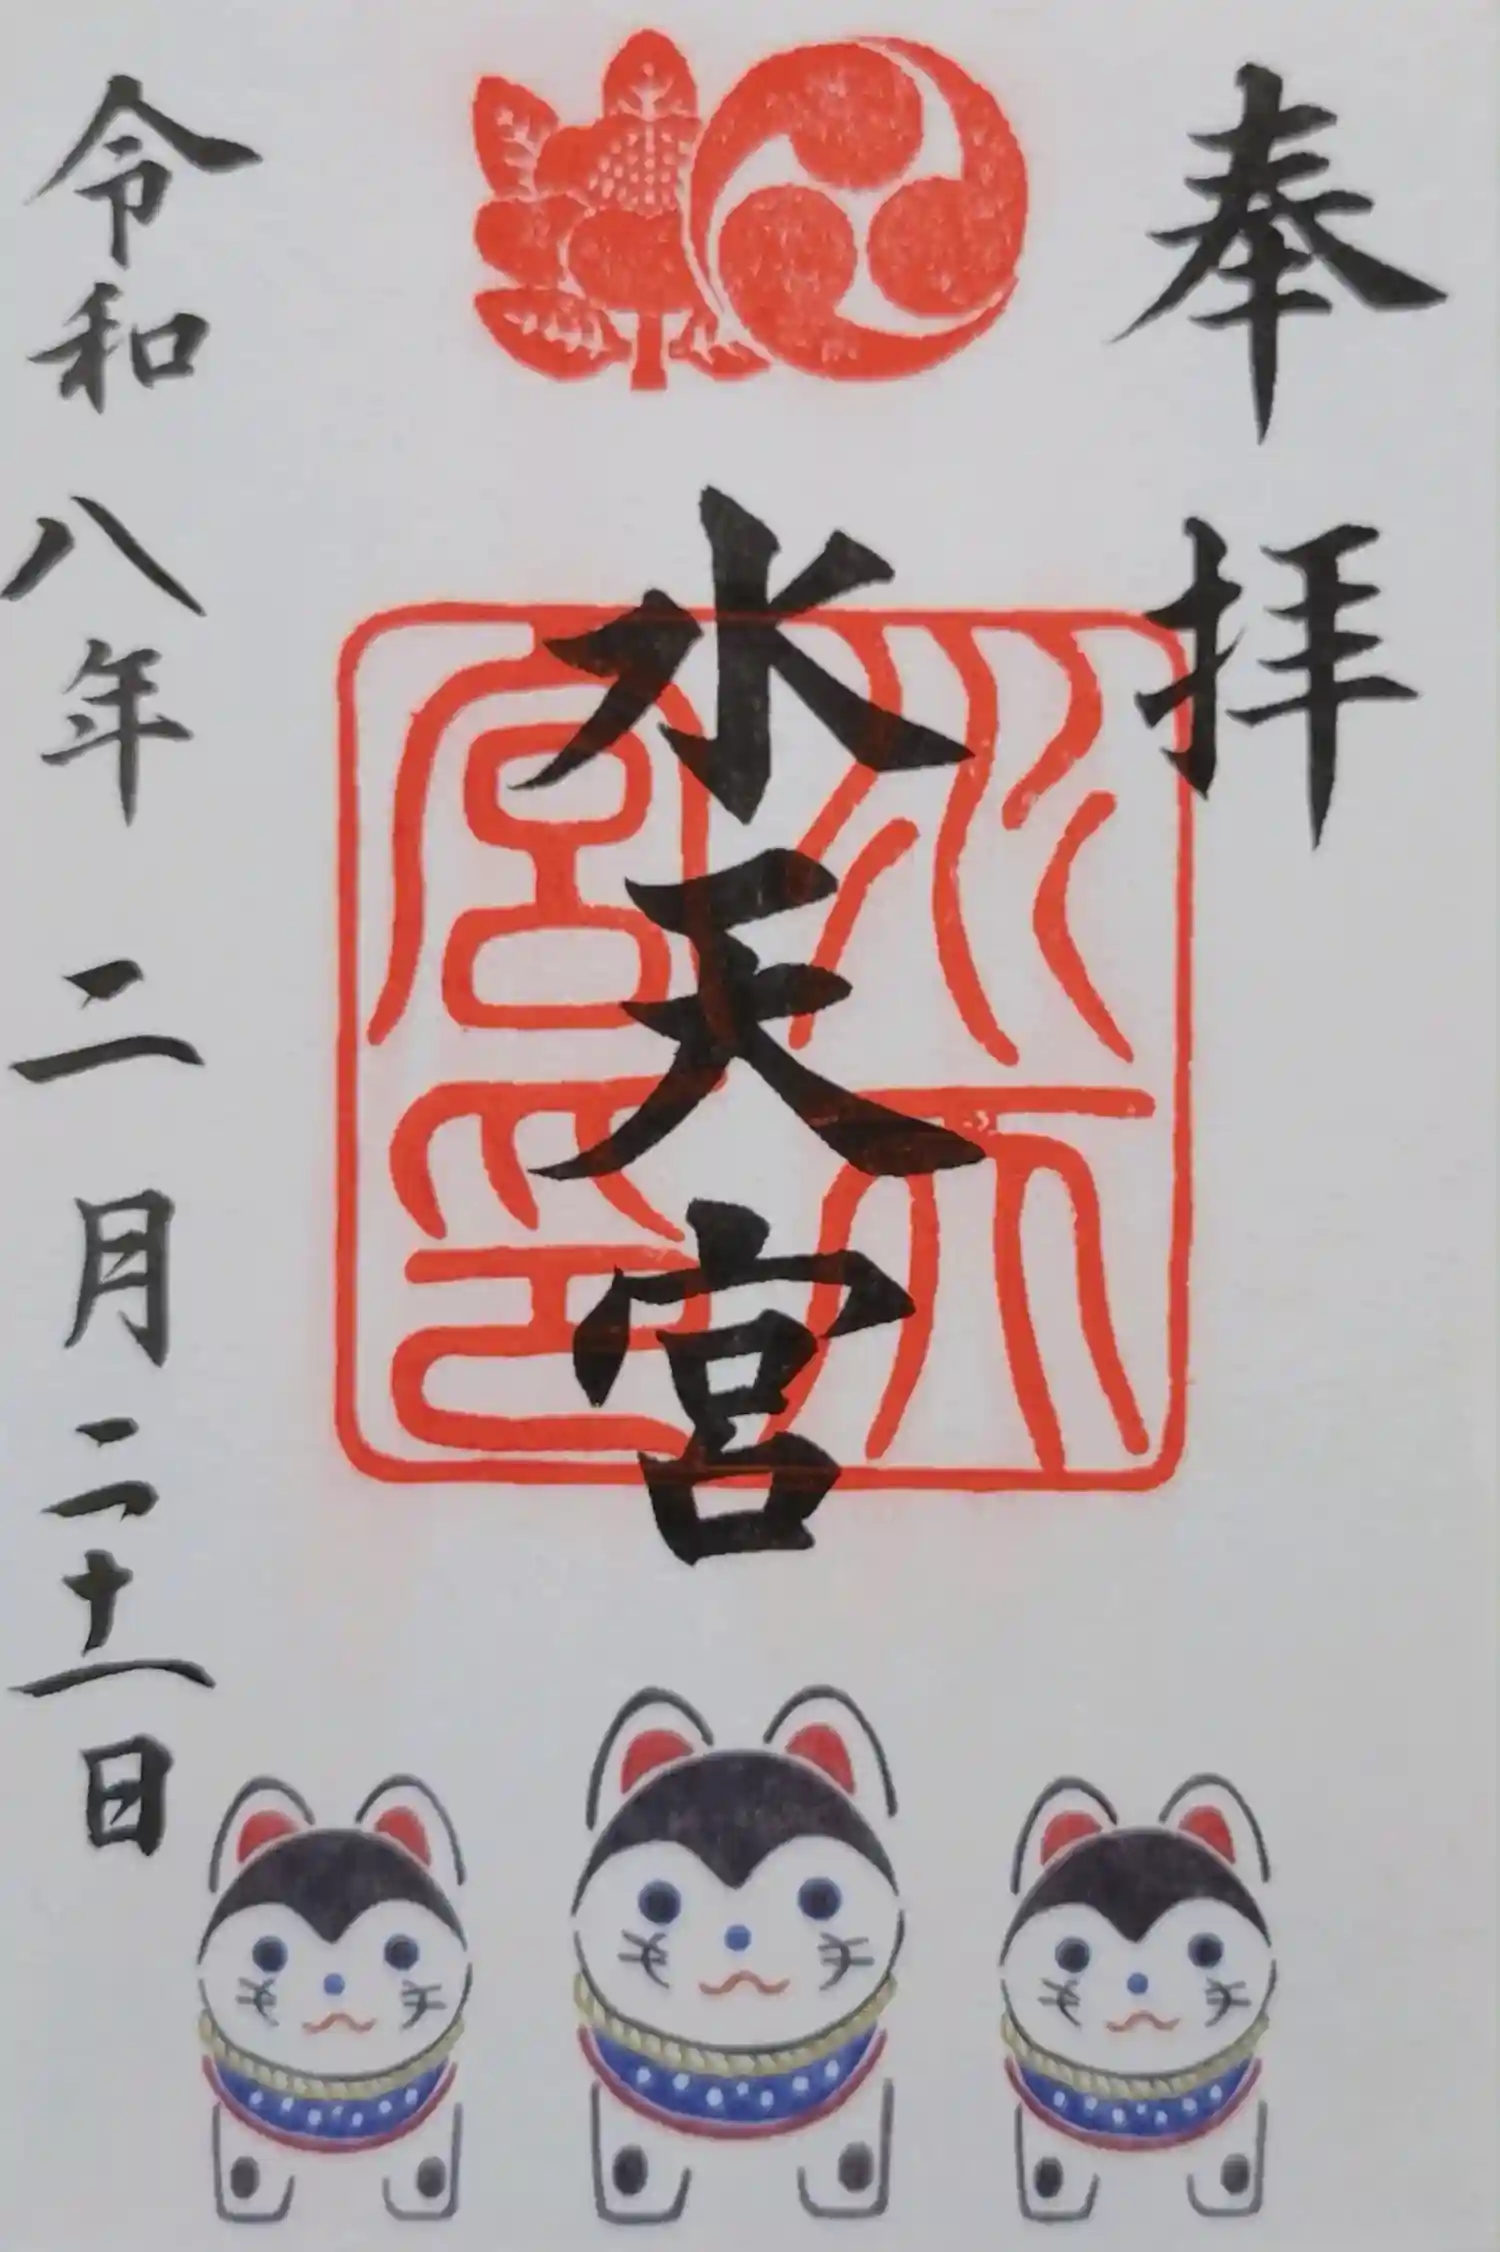 奉拝
水天宮
水天
宮印
令和八年二月二十一日